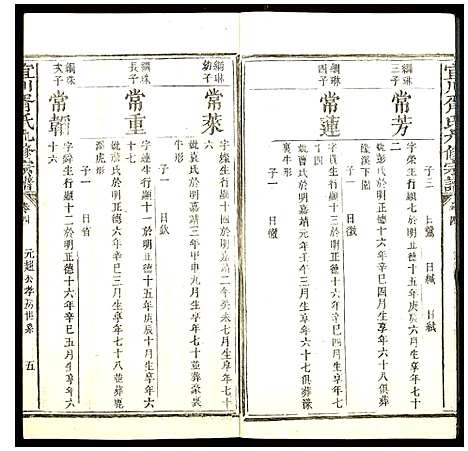 宜川胥氏九修宗譜
子三 日鸞 日械 日弑
綱琳三子
常芳
字榮生行顯七於明正德十五年庚辰六月生享年六十二
娶彭氏於明正德十六年辛巳四月生享年六十八俱葬
溪下
子一 日徵
綱琳四子
常蓮
字蓮生行顯十一於明正德十六年辛巳三月生享年七十四
娶嚴氏於明嘉靖二年癸未四月生享年六十七俱葬溪
裏牛形
子一 日徵
綱琳幼子
常萊
字燦生行顯十國於明嘉靖二年癸未七月生享年七十
娶袁氏於明嘉靖三年甲申九月生享年七十一並葬
牛形
子一 日欽
綱珠長子
常重
字達生行顯十於明正德十五年庚辰十月生享年六
娶魏氏於明正德十六年辛巳三月生享年七十八並葬
溪虎形
子一 日省
綱珠次子
常韜
字舜生行顯十二於明正德十六年辛巳十月生享年七十六
宜川胥氏九修宗譜 卷四 元起公孝房世系 五